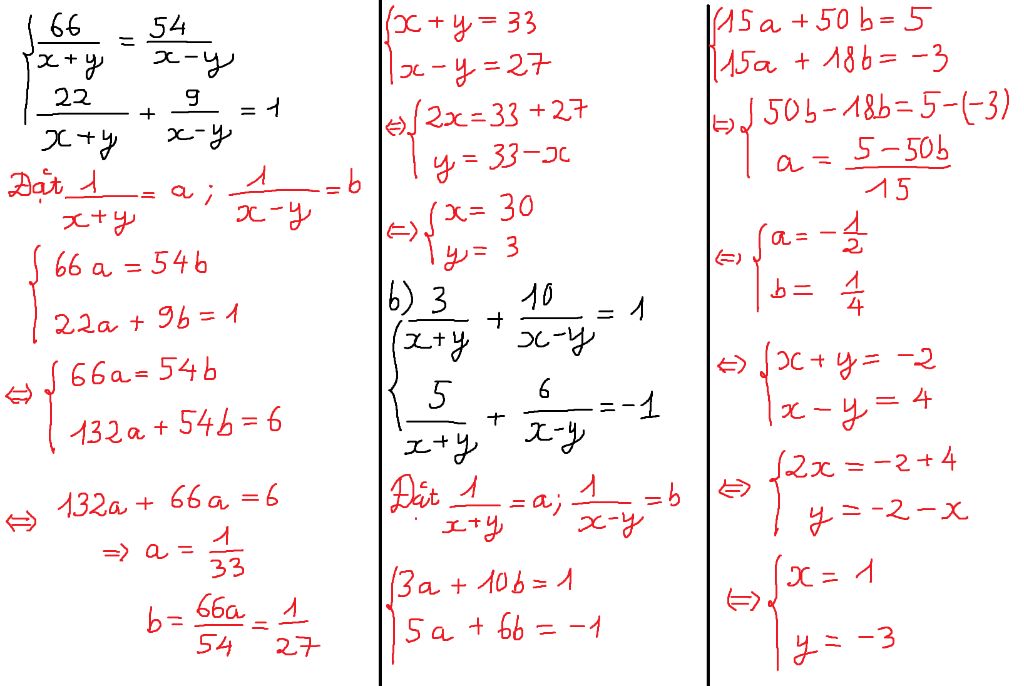 66/(x+y) = 54/(x-y)
22/(x+y) + 9/(x-y) = 1
Đặt 1/(x+y) = a ; 1/(x-y) = b
66a = 54b
22a + 9b = 1
⇔ 66a = 54b
132a + 54b = 6
⇔ 132a + 66a = 6
⇒ a = 1/33
b = 66a/54 = 1/27
x + y = 33
x - y = 27
⇔ 2x = 33 + 27
y = 33 - x
⇔ x = 30
y = 3
b) 3/(x+y) + 10/(x-y) = 1
5/(x+y) + 6/(x-y) = -1
Đặt 1/(x+y) = a ; 1/(x-y) = b
3a + 10b = 1
5a + 6b = -1
15a + 50b = 5
15a + 18b = -3
⇔ 50b - 18b = 5 - (-3)
a = (5 - 50b)/15
⇔ a = -1/2
b = 1/4
⇔ x + y = -2
x - y = 4
⇔ 2x = -2 + 4
y = -2 - x
⇔ x = 1
y = -3